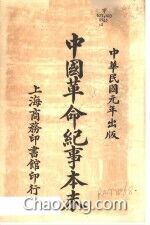 中華民國元年出版
中國革命紀事本末
上海商務印書館印行
Chaoxing.com